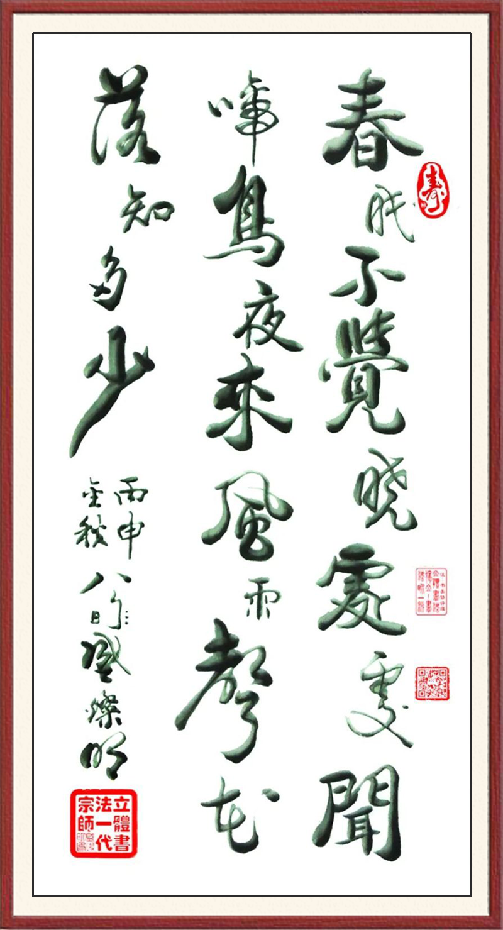 春眠不覺晓處處聞
啼鳥夜來風雨聲花
落知多少
丙申
金秋
八燦明
寿
立體書
法一代
宗師